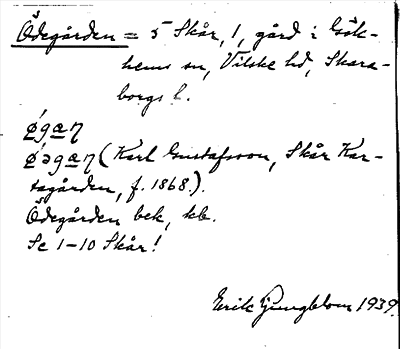 Ödegården = 5 Skår, 1, gård i Gök-
hems sn, Vilske hd, Skara-
borgs l.
ǿgaŋ
ǿəgaŋ (Karl Gustafsson, Skår Kar-
tagården, f. 1868).
Ödegården bek, kb.
Se 1-10 Skår!
Erik Ljungblom 1939.